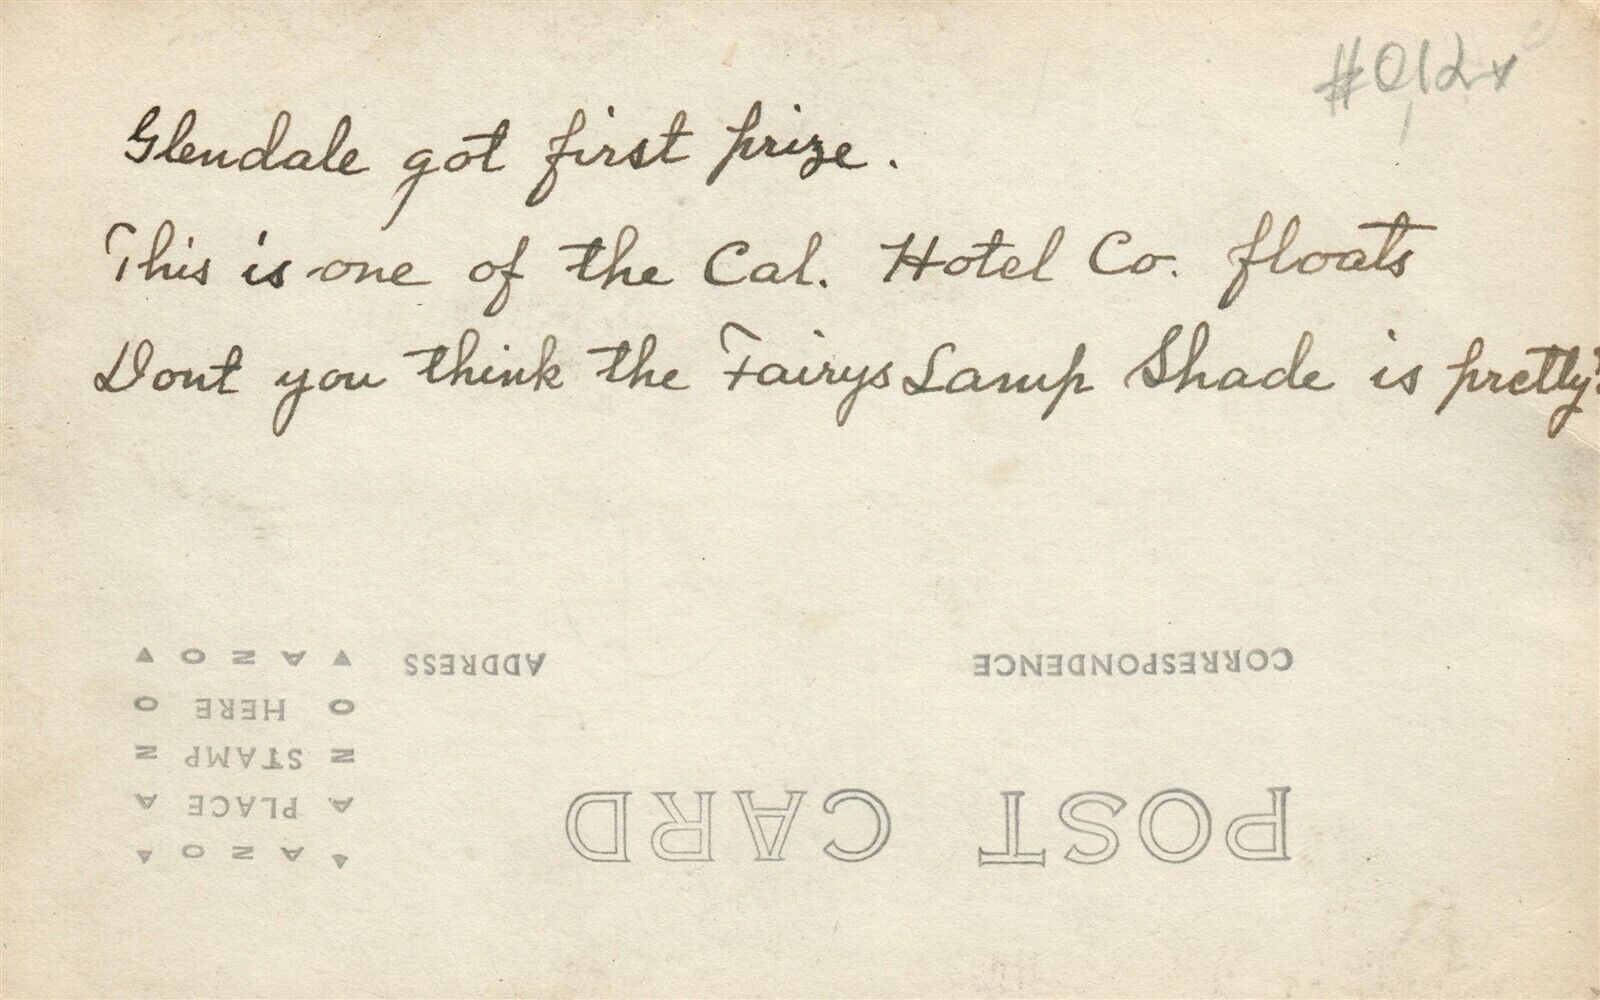 Glendale got first prize.
This is one of the Cal. Hotel Co. floats
Dont you think the Fairys Lamp Shade is pretty?
CORRESPONDENCE
ADDRESS
POST CARD
AZO
PLACE
STAMP
HERE
AZO